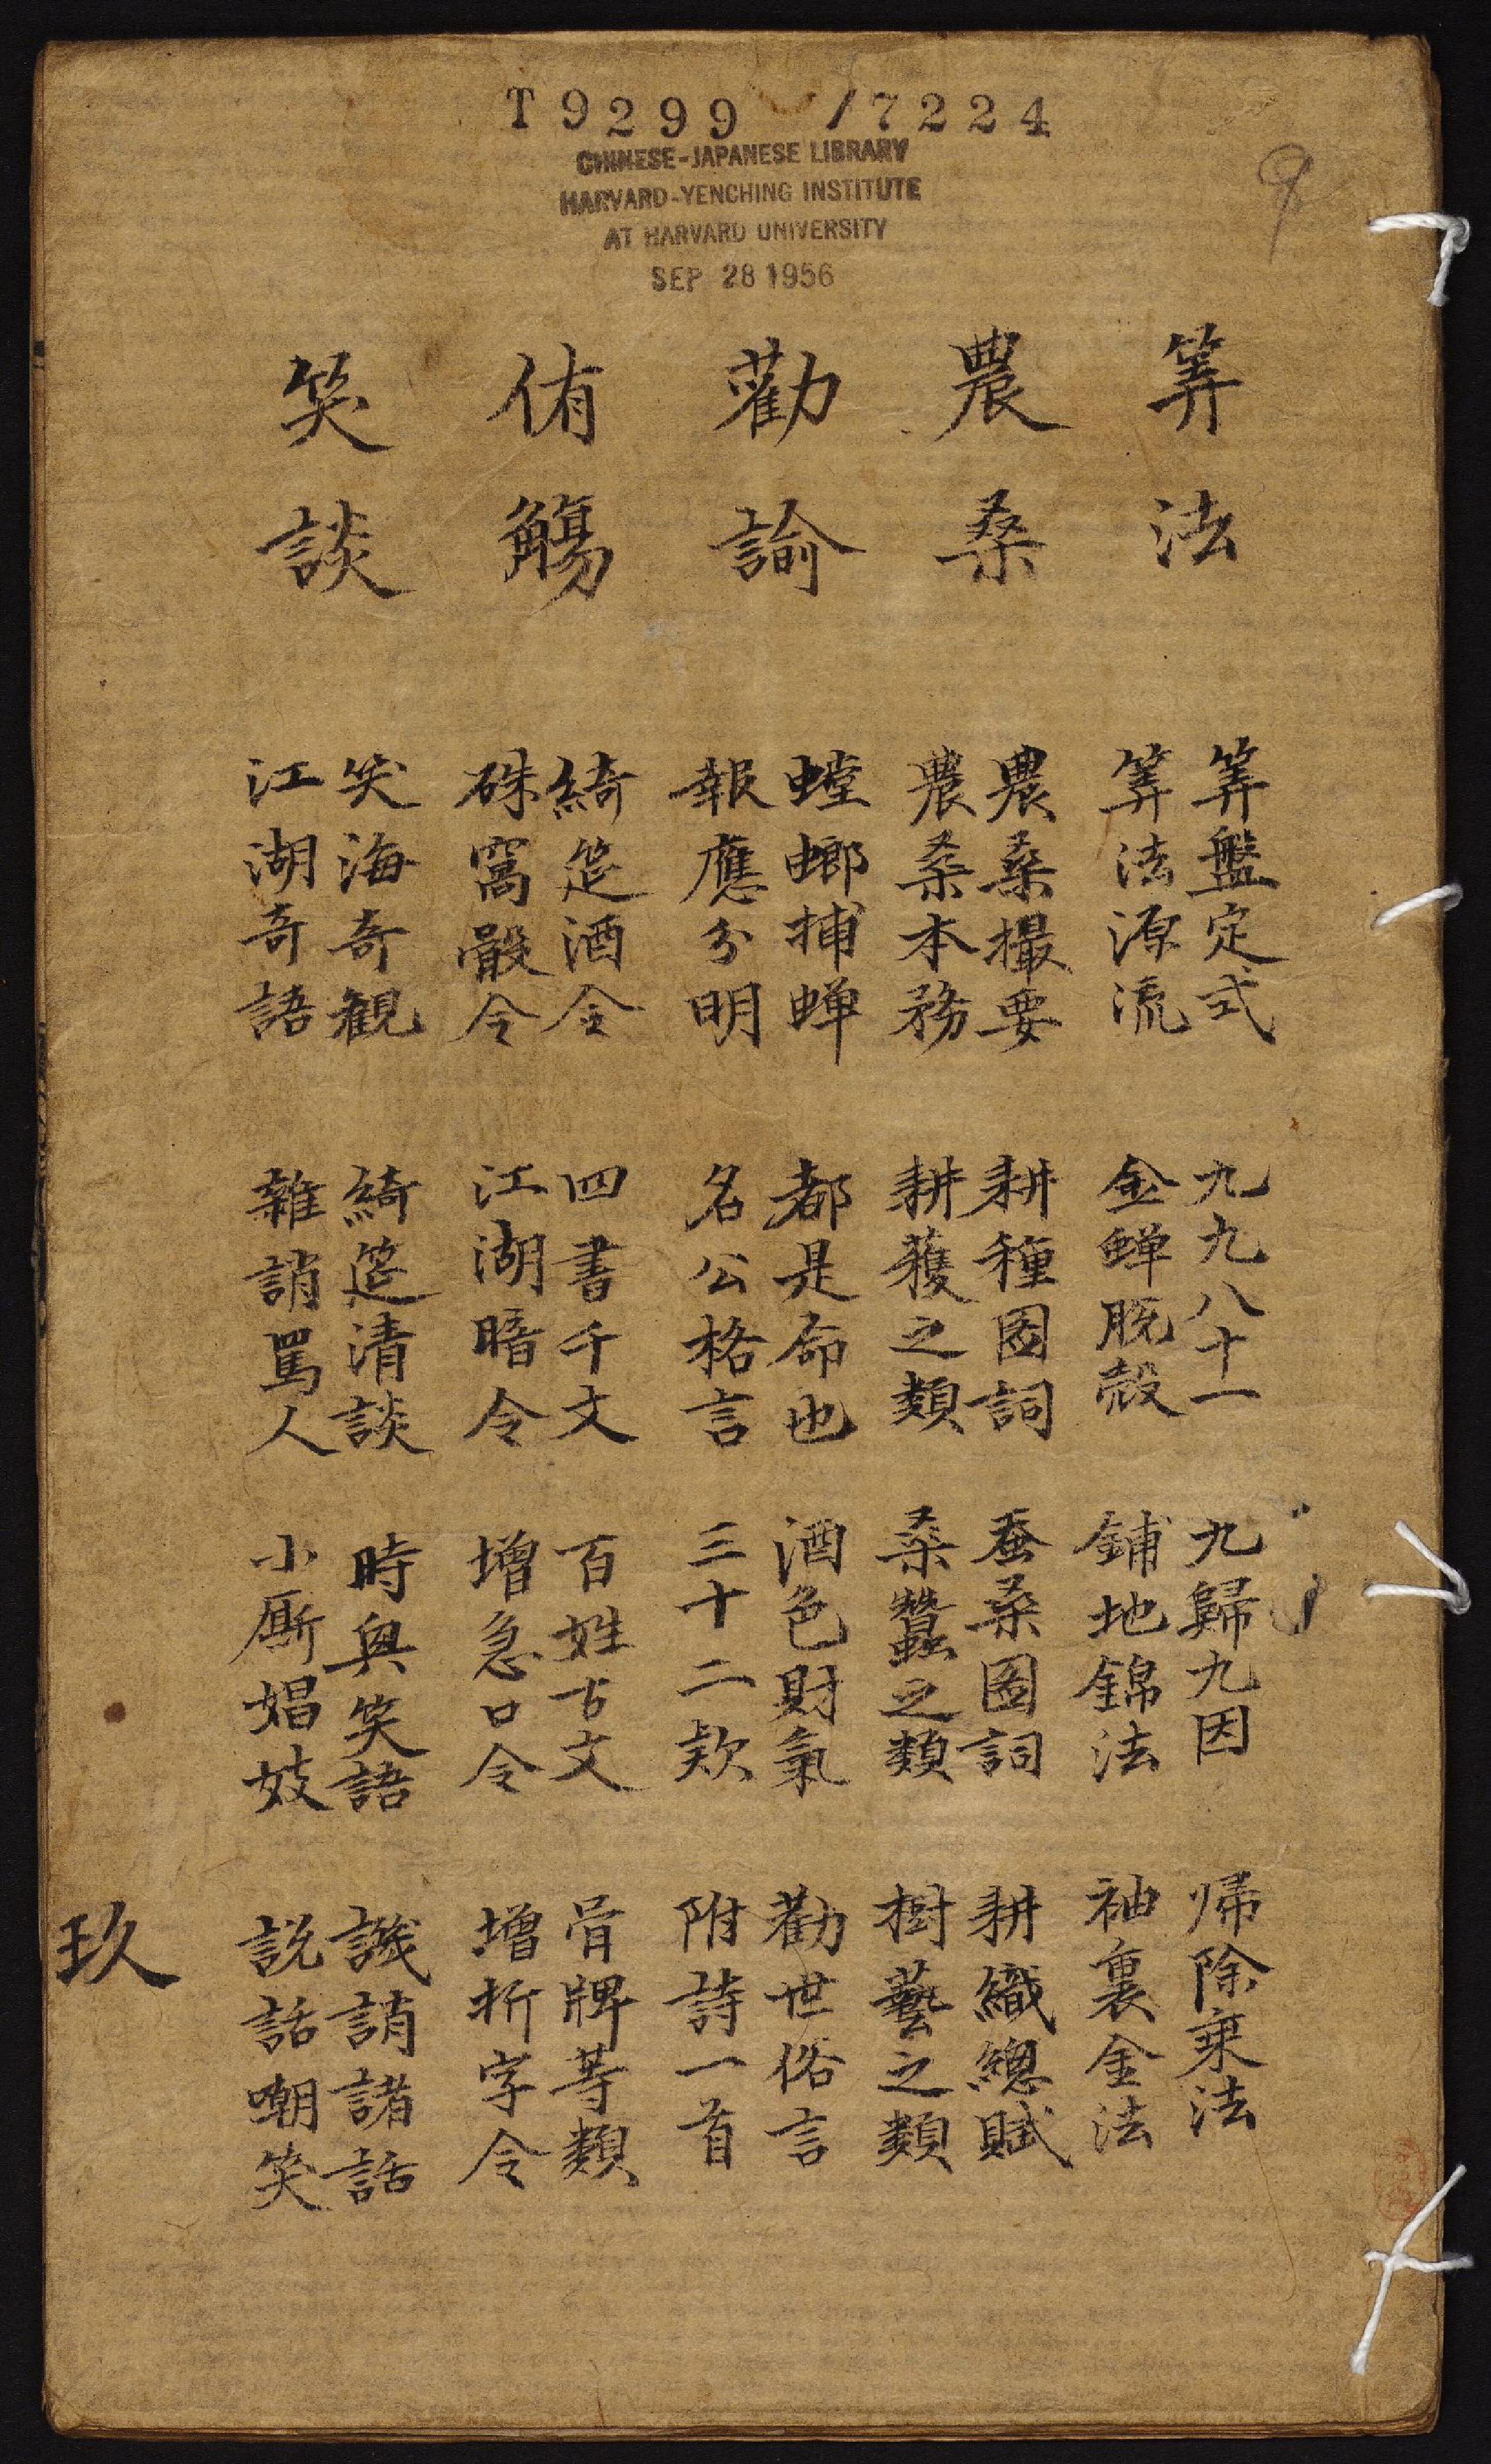 T9299 /7224
CHINESE-JAPANESE LIBRARY
HARVARD-YENCHING INSTITUTE
AT HARVARD UNIVERSITY
SEP 28 1956
9
筭法
筭盤定式 九九八十一 九歸九因 帰除乗法
筭法源流 金蝉脱殻 鋪地錦法 袖裏金法
農桑
農桑撮要 耕種圖詞 蚕桑圖詞 耕織總賦
農桑本務 耕穫之類 桑蠶之類 樹藝之類
勸諭
螳螂捕蝉 都是命也 酒色財氣 勸世俗言
報應分明 名公格言 三十二款 附詩一首
侑觴
綺筵酒令 四書千文 百姓古文 骨牌等類
硃窩骰令 江湖暗令 增急口令 增折字令
笑談
笑海奇観 綺筵清談 時興笑語 譏誚諸話
江湖奇語 雜誚罵人 小厮娼妓 説話嘲笑
玖